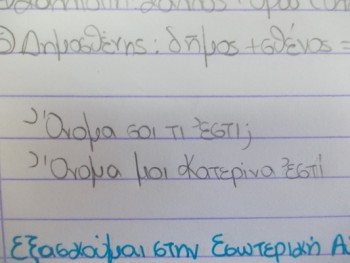 5) Δημοσθένης: δῆμος + σθένος =
Ὄνομα σοι τι ἐστι;
Ὄνομα μοι Κατερίνα ἐστί
Εξασκούμαι στην Εσωτερική